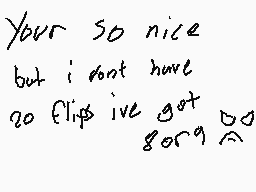 Your so nice
but i dont have
20 flips ive got
8 or 9